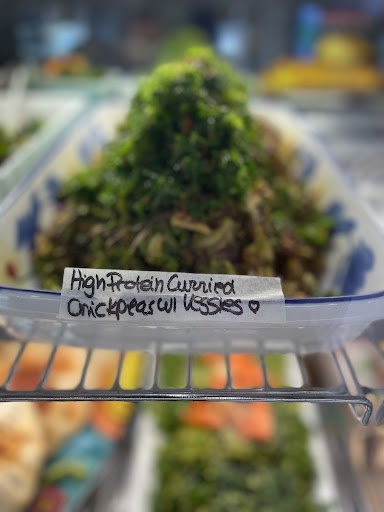 High Protein Curried
Chickpeas W/ Veggies ♡